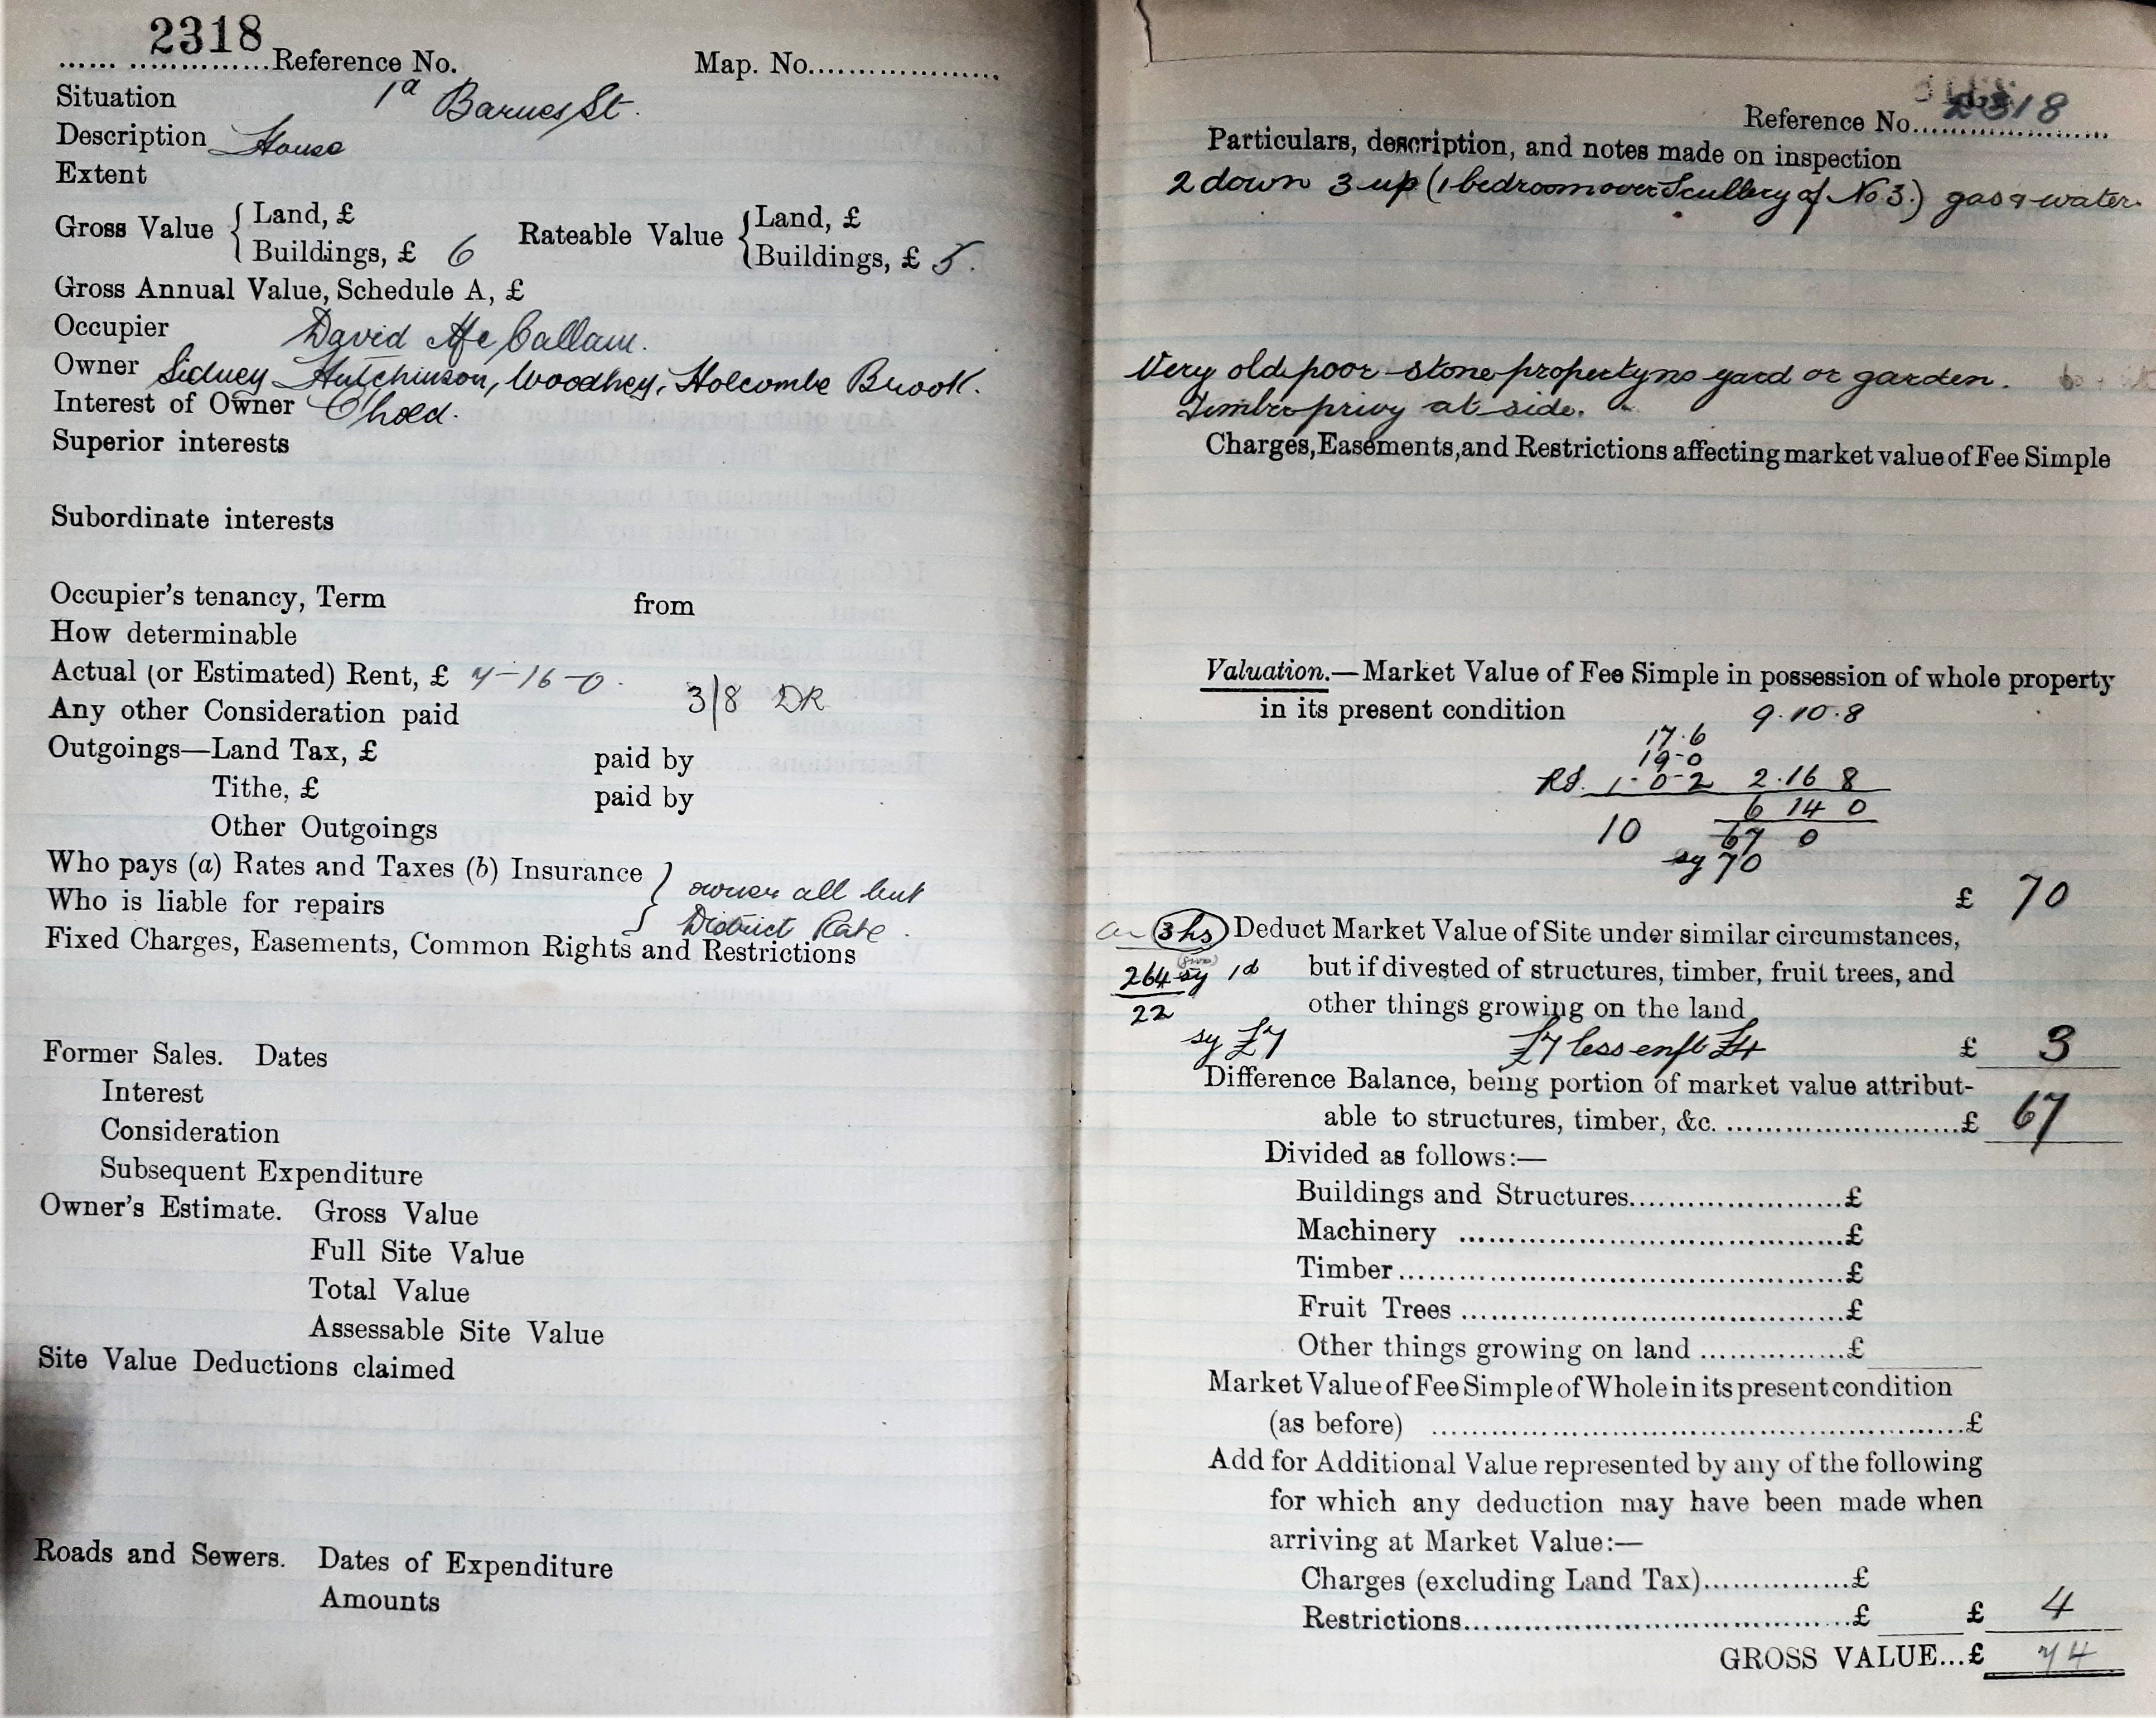 2318
Reference No. Map. No.
Situation 1a Barnes St.
Description House
Extent
Gross Value { Land, £ Rateable Value { Land, £
Buildings, £ 6 Buildings, £ 5.
Gross Annual Value, Schedule A, £
Occupier David Mc Callam.
Owner Sidney Hutchinson, Woodhey, Holcombe Brook.
Interest of Owner C'hold.
Superior interests
Subordinate interests
Occupier's tenancy, Term from
How determinable
Actual (or Estimated) Rent, £ 7-16-0. 3/8 DR
Any other Consideration paid
Outgoings—Land Tax, £ paid by
Tithe, £ paid by
Other Outgoings
Who pays (a) Rates and Taxes (b) Insurance } owner all but
Who is liable for repairs District Rate.
Fixed Charges, Easements, Common Rights and Restrictions
Former Sales. Dates
Interest
Consideration
Subsequent Expenditure
Owner's Estimate. Gross Value
Full Site Value
Total Value
Assessable Site Value
Site Value Deductions claimed
Roads and Sewers. Dates of Expenditure
Amounts
Reference No. 2318
Particulars, description, and notes made on inspection
2 down 3 up (1 bedroom over Scullery of No 3.) gas & water.
Very old poor stone property no yard or garden.
Timber privy at side.
Charges, Easements, and Restrictions affecting market value of Fee Simple
Valuation.—Market Value of Fee Simple in possession of whole property
in its present condition 9.10.8
17.6
19-0
Rd. 1-0-2 2.16 8
6 14 0
10 67 0
sy 70
£ 70
3 hs Deduct Market Value of Site under similar circumstances,
264 sy 1d but if divested of structures, timber, fruit trees, and
22 other things growing on the land
sy £7 £7 less enft £4 £ 3
Difference Balance, being portion of market value attribut-
able to structures, timber, &c. £ 67
Divided as follows:—
Buildings and Structures £
Machinery £
Timber £
Fruit Trees £
Other things growing on land £
Market Value of Fee Simple of Whole in its present condition
(as before) £
Add for Additional Value represented by any of the following
for which any deduction may have been made when
arriving at Market Value:—
Charges (excluding Land Tax) £
Restrictions £ £ 4
GROSS VALUE...£ 74